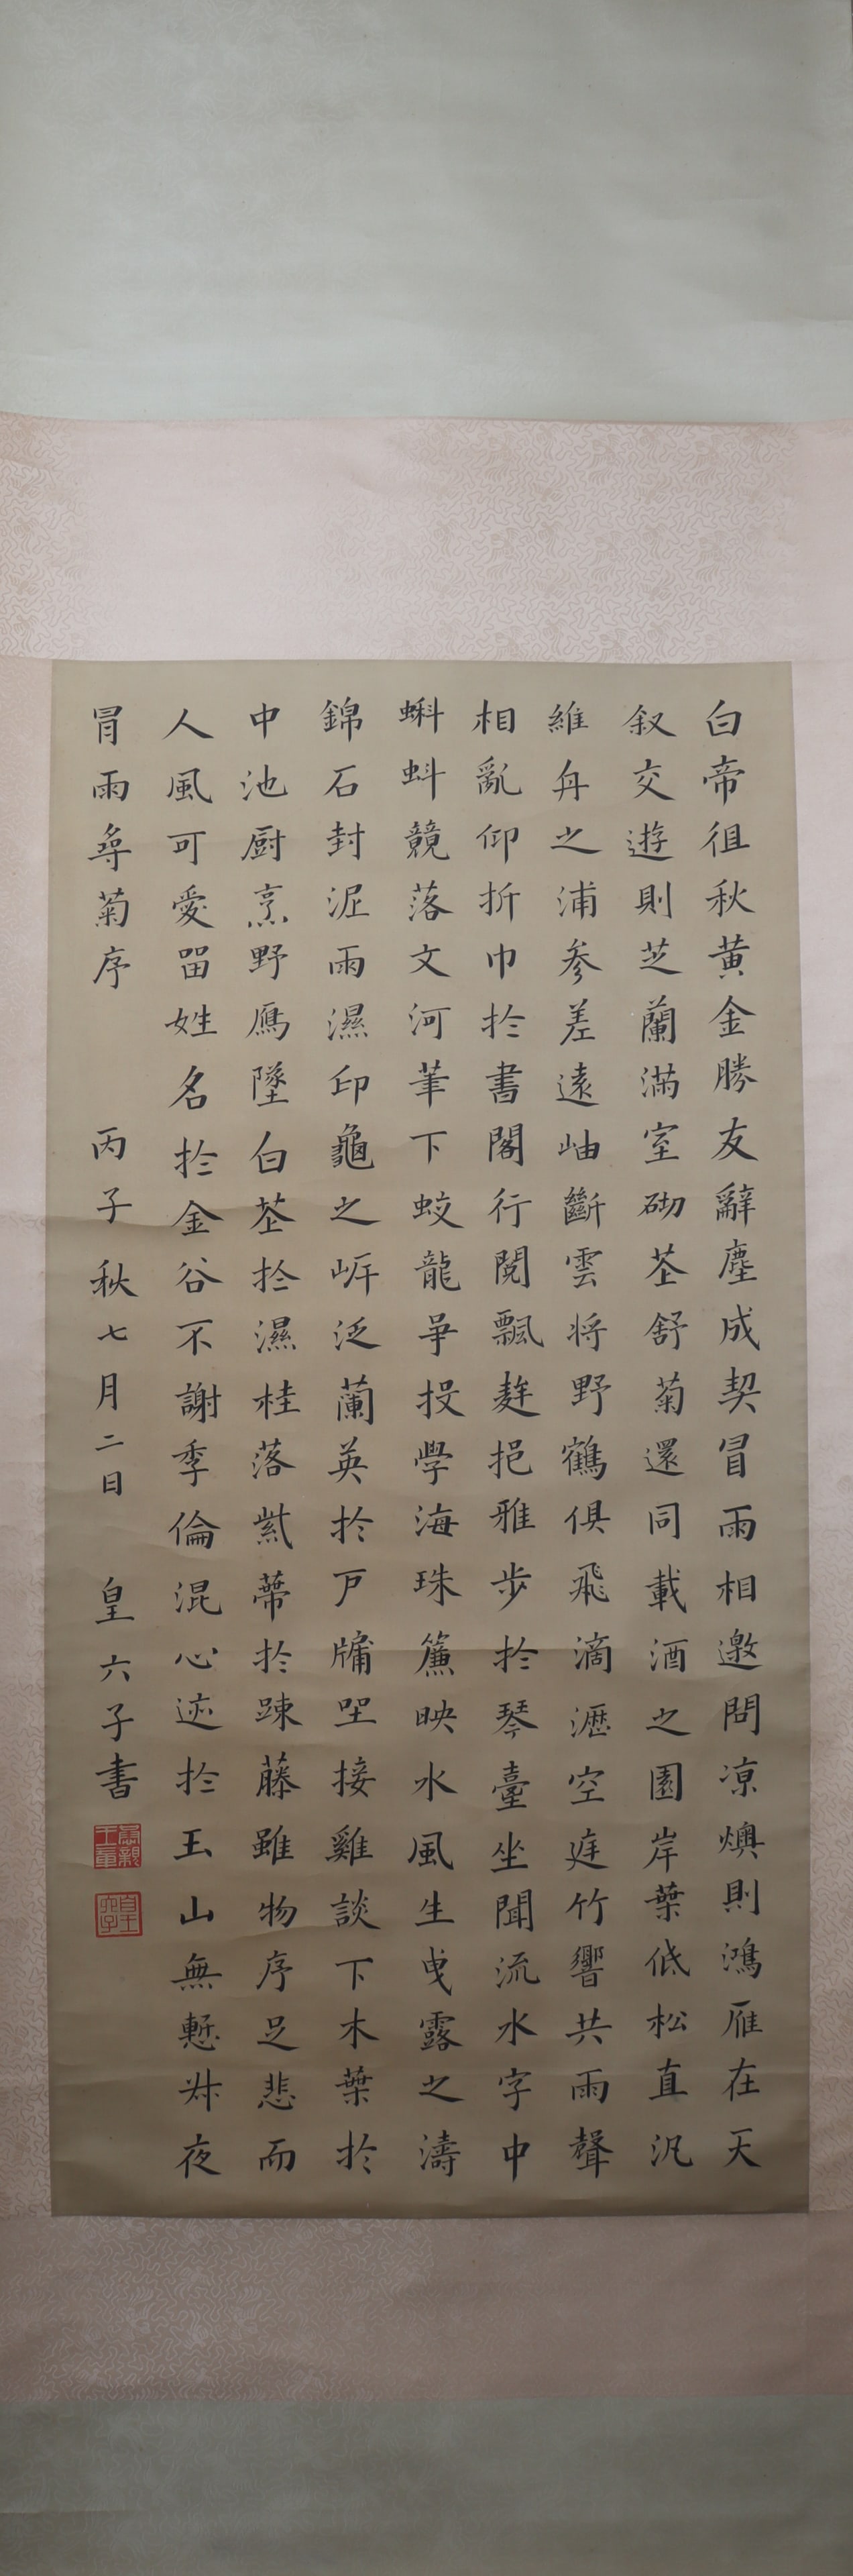 白帝徂秋黄金勝友辭塵成契冒雨相邀問凉燠則鴻雁在天
叙交遊則芝蘭滿室砌花舒菊還同載酒之園岸葉低松直汎
維舟之浦參差遠岫斷雲將野鶴俱飛滴瀝空庭竹響共雨聲
相亂仰折巾於書閣行閱飄麰挹雅步於琴臺坐聞流水字中
蝌蚪競落文河筆下蛟龍爭投學海珠簾映水風生曳露之濤
錦石封泥雨濕印龜之岸泛蘭英於戶牖坐接雞談下木葉於
中池厨烹野鴈墜白花於濕桂落紫蔕於踈藤雖物序足悲而
人風可愛留姓名於金谷不謝季倫混心迹於玉山無慙叔夜
冒雨尋菊序 丙子秋七月二日 皇六子書
皇六子